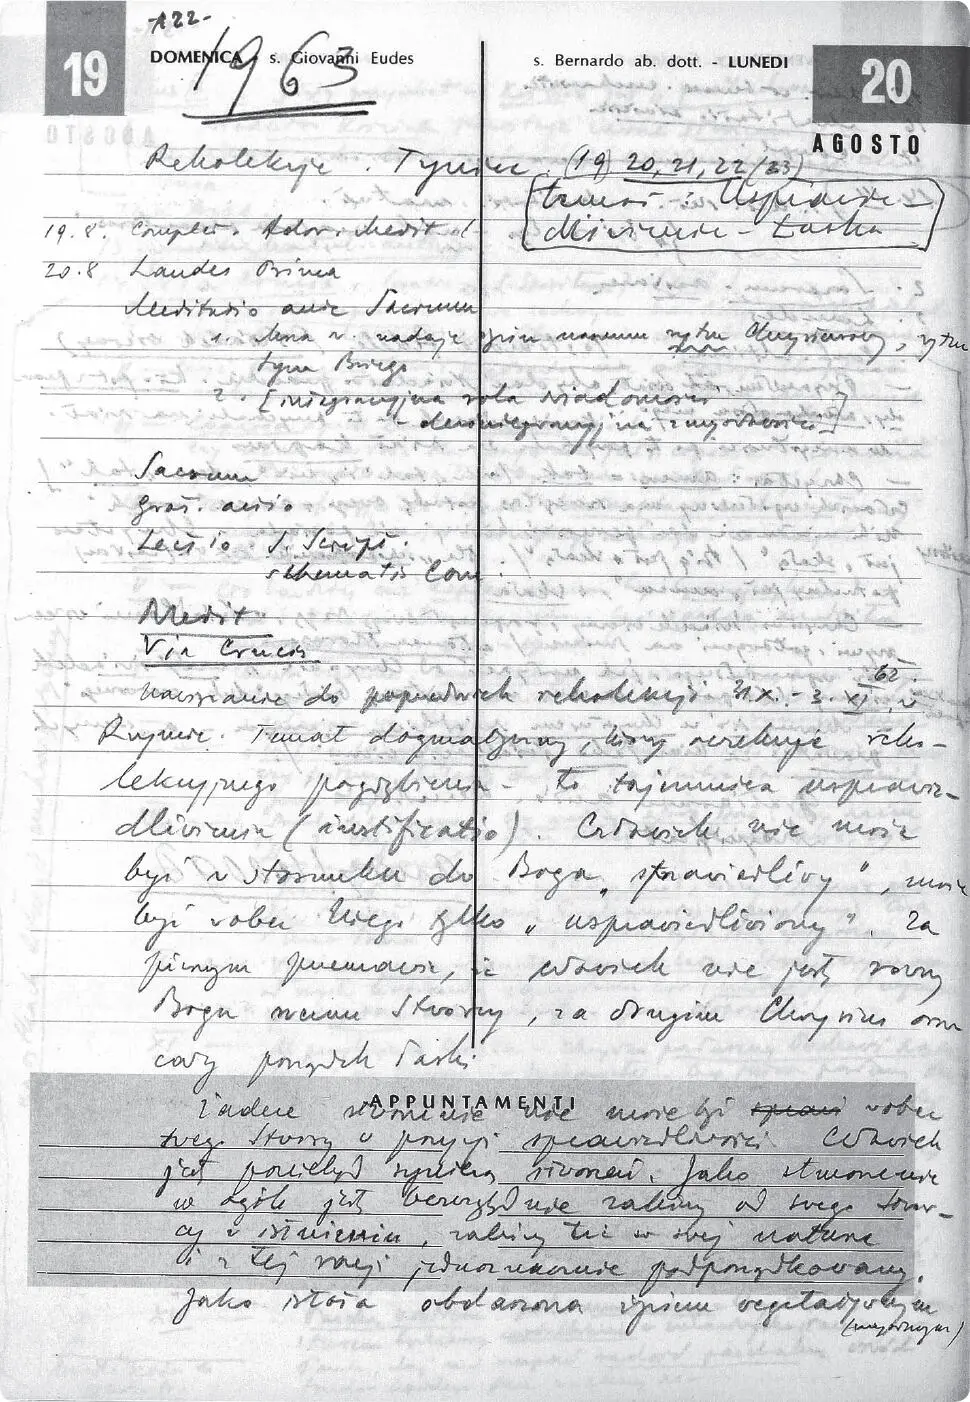 A22-
19 DOMENICA - s. Giovanni Eudes
1963
s. Bernardo ab. dott. - LUNEDI 20
AGOSTO
Rekolekcje. Tyniec. (19) 20, 21, 22 /23)
temat: Usprawie-
dliwienie - Łaska
19.8. Complet. Ador. Medit.
20.8 Laudes Prima
Meditatio ante Sacrum
1. nadaje życiu naszemu rytm Chrystusowy, rytm
tym Bożego
2. [integracyjna rola świadomości
- dezintegracyjna zmysłowości]
Sacrum
Grat. actio
Lectio S. Script.
schematis Conc.
Medit
Via Crucis
Nawiązanie do poprzednich rekolekcji 31 X. - 3. XI 62. w
Rzymie. Temat dogmatyczny, który oczekuje reko-
lekcyjnego pogłębienia - to tajemnica usprawie-
dliwienia (iustificatio). Człowiek nie może
być w stosunku do Boga „sprawiedliwy”, może
być wobec Niego tylko „usprawiedliwiony”. Za
pierwszym przemawia, że człowiek nie jest równy
Bogu swemu Stwórcy, za drugim Chrystus oraz
cały porządek łaski
APPUNTAMENTI
Żadne stworzenie nie może być wobec
swego Stwórcy w pozycji sprawiedliwości. Człowiek
jest poniekąd syntezą stworzeń. Jako stworzenie
w ogóle jest bezwzględnie zależny od swego Stwór-
cy w istnieniu, zależny też w swej naturze
i z tej racji jednoznacznie podporządkowany.
Jako istota obdarzona życiem wegetatywnym